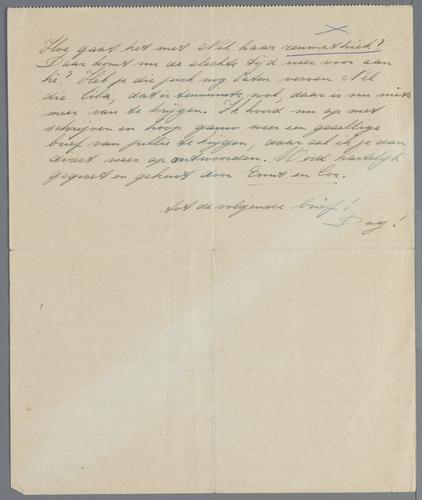 Hoe gaat het met Nel haar reumathiek?
Daar komt nu de slechte tijd weer voor aan
hè? Heb je die jurk nog laten verven Nel
die lila, dat is tenminste wol, daar is nu niets
meer van te krijgen. Ik houd nu op met
schrijven en hoop gauw weer een gezellige
brief van jullie te krijgen, daar zal ik je dan
direct weer op antwoorden. Word hartelijk
gegroet en gekust door Ernst en Cor.
tot de volgende brief!
Dag!